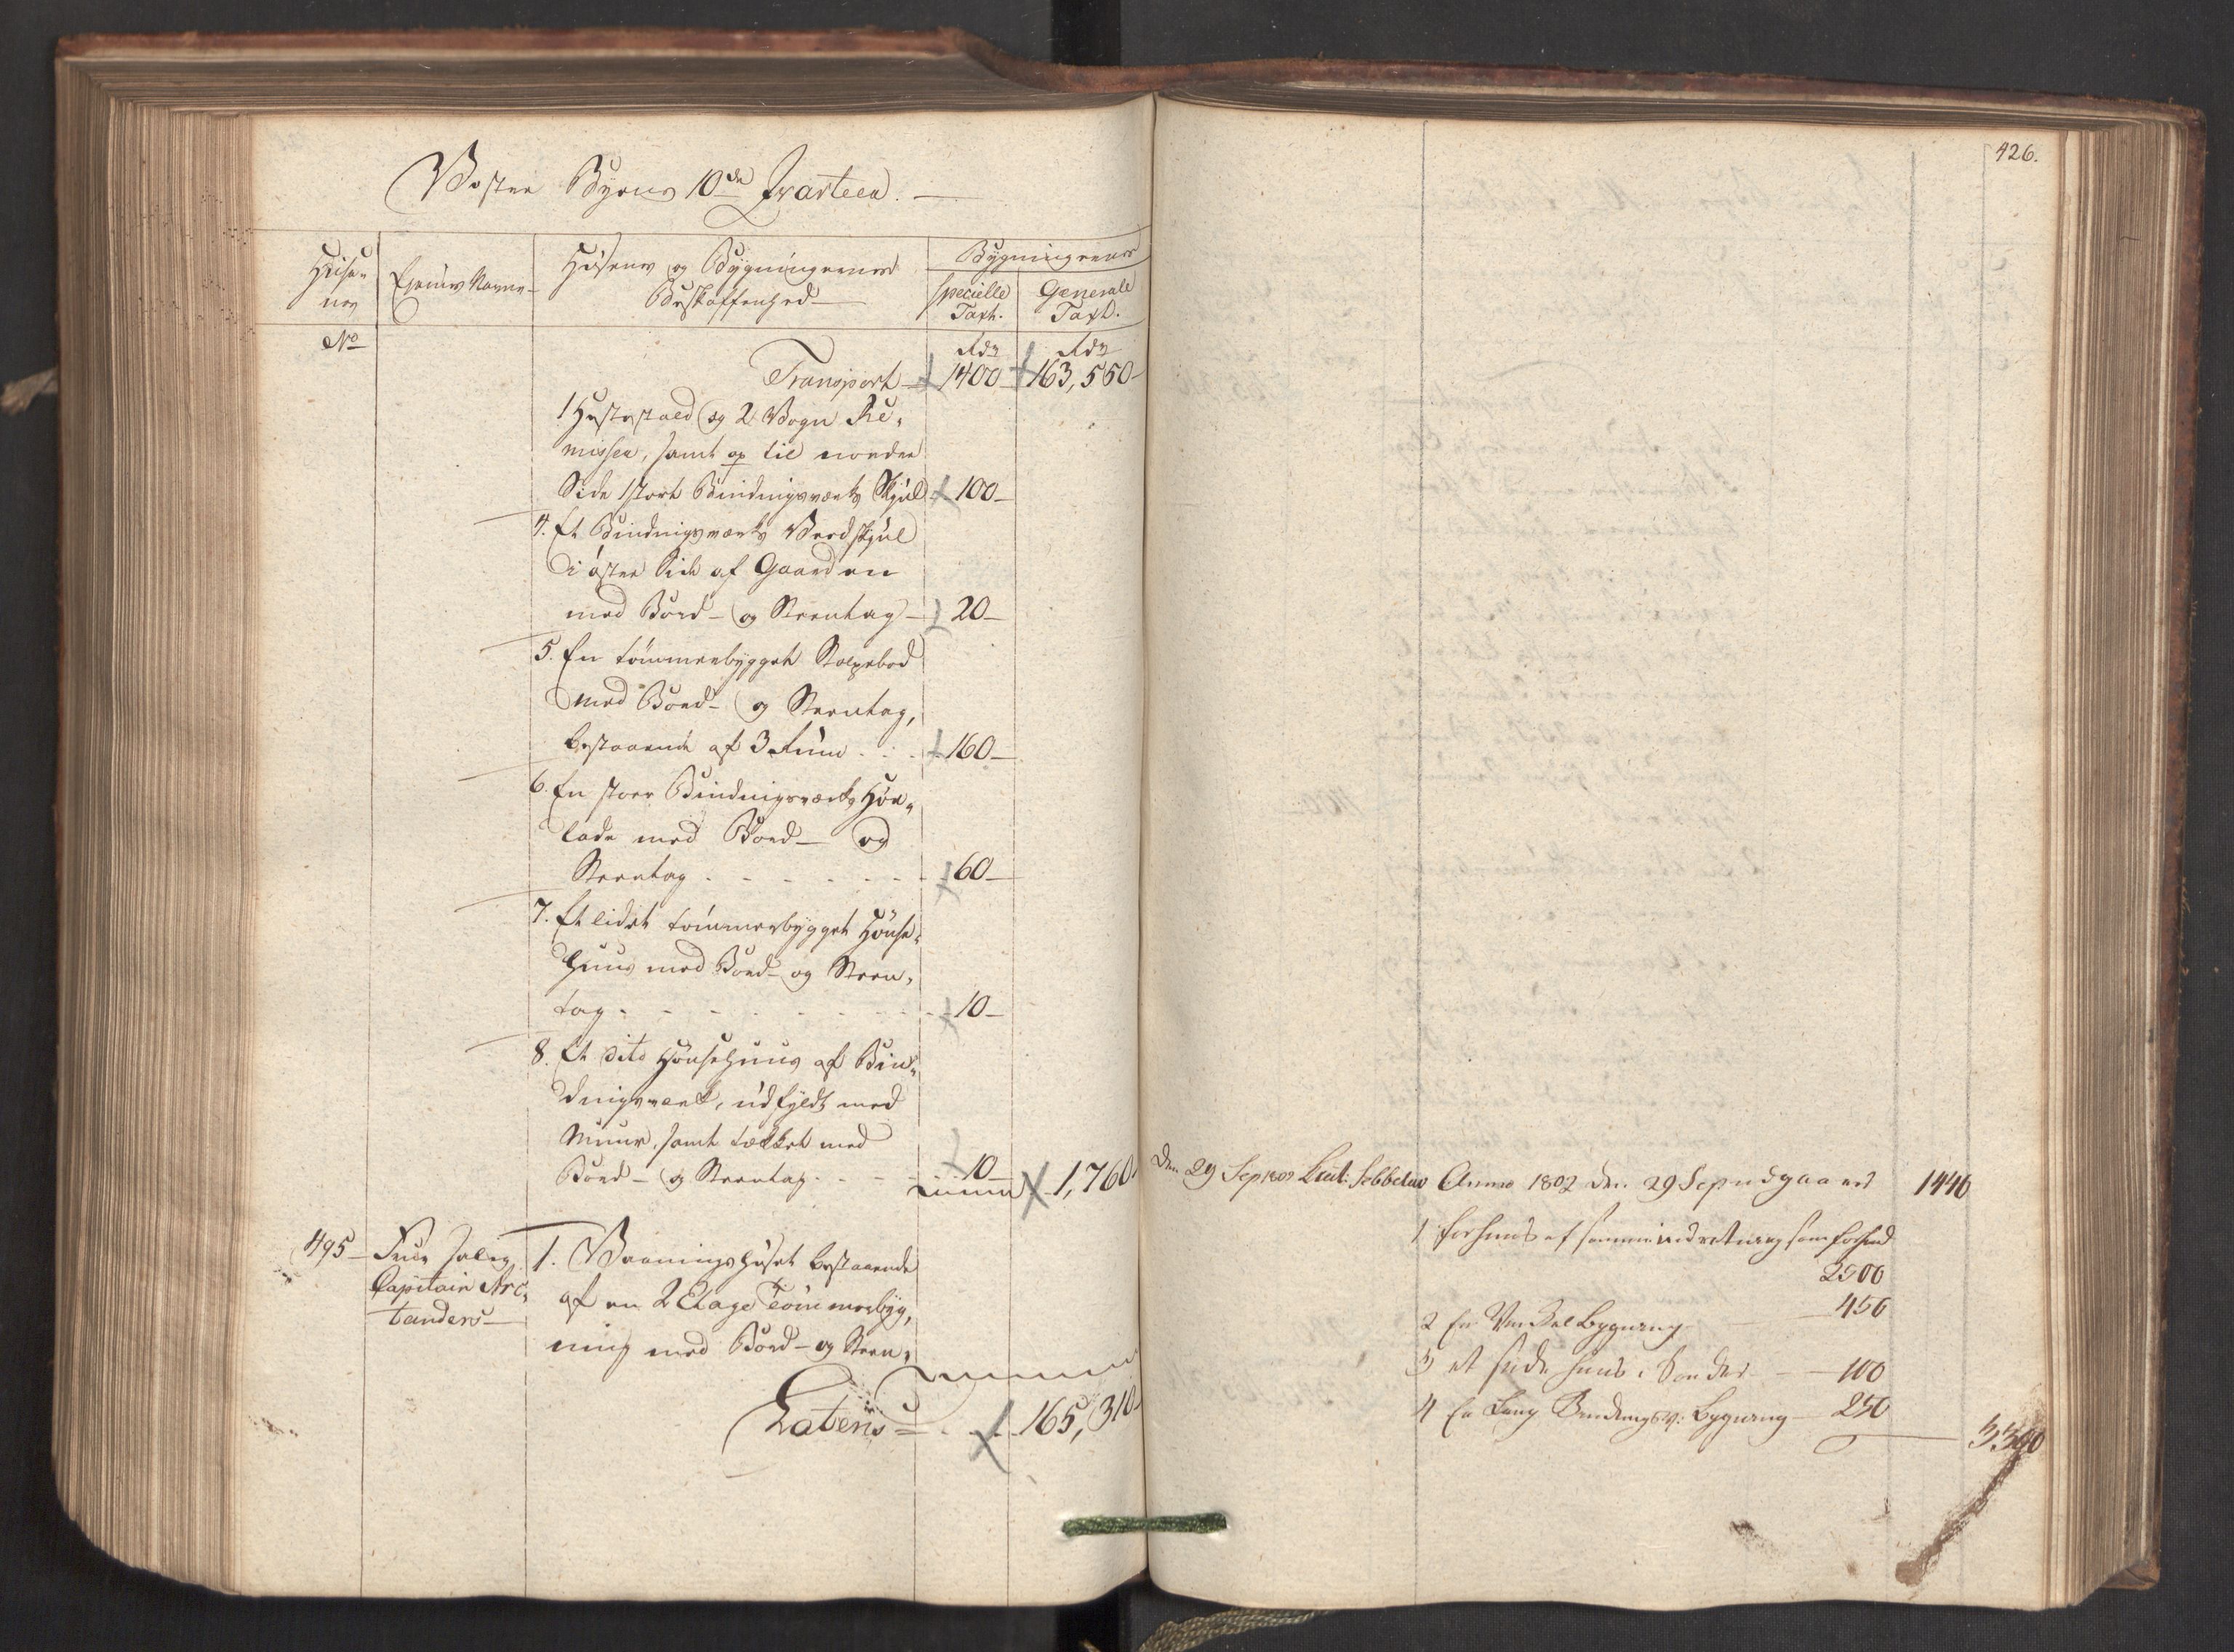 426.
Wester Byens 10de Qvarteer.
Huse-
nes
Ejernes Navne
Husenes og Bygningernes
Beskaffenhed
Bygningernes
Specielle
Taxt.
Generale
Taxt.
No
Rdr
Rdr
Transport 1400 163,550
1 Hestestald og 2 Vogn Re-
misser, samt op til norder
Side 1 stort Bindingsværks Skjul 100
4. Et Bindingsværks Vedskjul
i øster Side af Gaarden
med Bord- og Steentag 20
5. En tømmerbygget Stolpebod
med Bord- og Steentag,
bestaaende af 3 Rum 160
6. En stor Bindingsværks Høe-
lade med Bord- og
Steentag 60
7. Et lidet tømmerbygget Hønse-
huus med Bord- og Steen-
tag 10
8. Et dito Hønsehuus af Bin-
dingsværk, udfyldt med
Muur, samt tækket med
Bord- og Steentag 10
1,760
495 Frue salig
Capitain Arc-
tanders
1. Vaaningshuset bestaaende
af en 2 Etage Tømmerbyg-
ning med Bord- og Steen-
Lateris 165,310
Den 29 Sep 1802 Lieut: Sebbelow Anno 1802 den 29 Sep udgaaed 1440
1 forhuus af samme indretning som forhend
2500
2 En Vinkel bygning 450
3 et side huus i Sønder 100
4 En Lang Bindingsv: bygning 250
3300